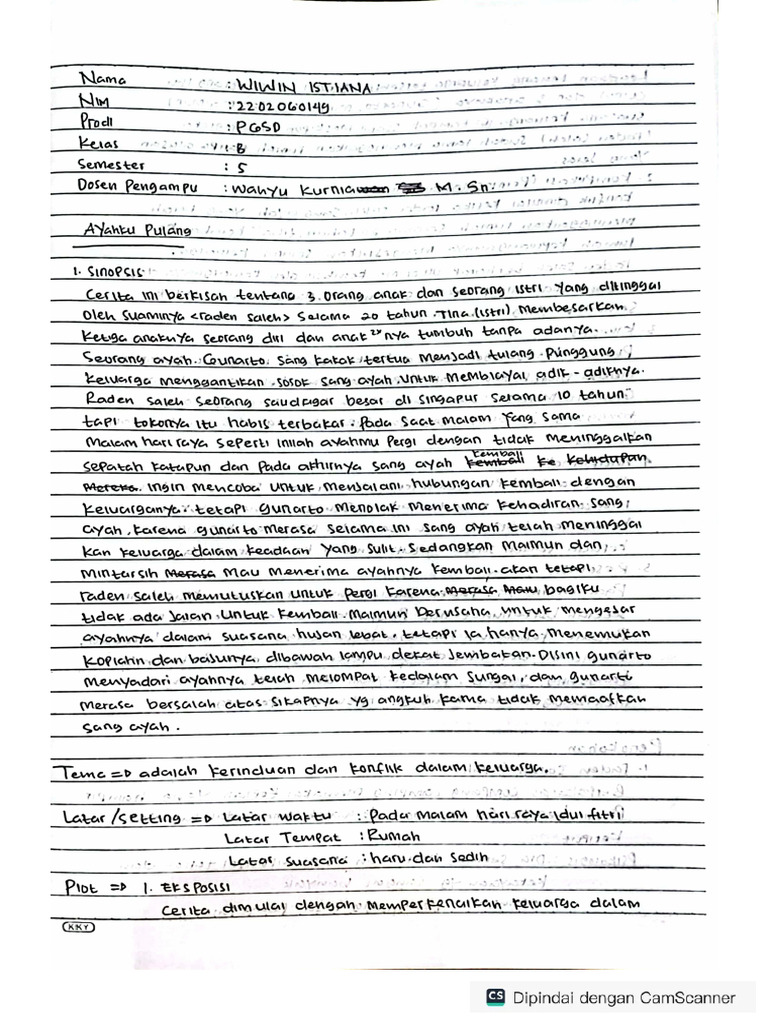 Nama : WIWIN ISTIANA
Nim : 2202060149
Prodi : PGSD
Kelas : B
Semester : 5
Dosen Pengampu : Wahyu Kurniawan M.Sn
Ayahku Pulang
1. SINOPSIS
Cerita ini berkisah tentang 3 orang anak dan seorang istri yang ditinggal
oleh suaminya <raden saleh> selama 20 tahun. Tina (istri) membesarkan
ketiga anaknya seorang diri dan anak²nya tumbuh tanpa adanya
seorang ayah. Gunarto sang kakak tertua menjadi tulang punggung
keluarga menggantikan sosok sang ayah untuk membiayai adik-adiknya.
Raden saleh seorang saudagar besar di singapur selama 10 tahun
tapi tokonya itu habis terbakar. Pada saat malam yang sama
malam hari raya seperti inilah ayahmu pergi dengan tidak meninggalkan
sepatah katapun dan pada akhirnya sang ayah kembali kembali ke kehidupan
mereka ingin mencoba untuk menjalani hubungan kembali dengan
keluarganya. tetapi gunarto menolak menerima kehadiran sang
ayah, karena gunarto merasa selama ini sang ayah telah meninggal
kan keluarga dalam keadaan yang sulit. Sedangkan maimun dan
mintarsih merasa mau menerima ayahnya kembali. akan tetapi
raden saleh memutuskan untuk pergi karena merasa mau bagiku
tidak ada jalan untuk kembali. maimun berusaha untuk mengejar
ayahnya dalam suasana hujan lebat, tetapi ia hanya menemukan
kopiahn dan bajunya dibawah lampu dekat jembatan. Disini gunarto
menyadari ayahnya telah melompat kedalam sungai, dan gunarto
merasa bersalah atas sikapnya yg angkuh karna tidak memaafkan
sang ayah.
Tema => adalah kerinduan dan konflik dalam keluarga.
Latar/setting => Latar waktu : Pada malam hari raya idul fitri
Latar Tempat : Rumah
Latar suasana : haru dan sedih
Plot => 1. EKSPOSISI
Cerita dimulai dengan memperkenalkan keluarga dalam
KKY
CS Dipindai dengan CamScanner